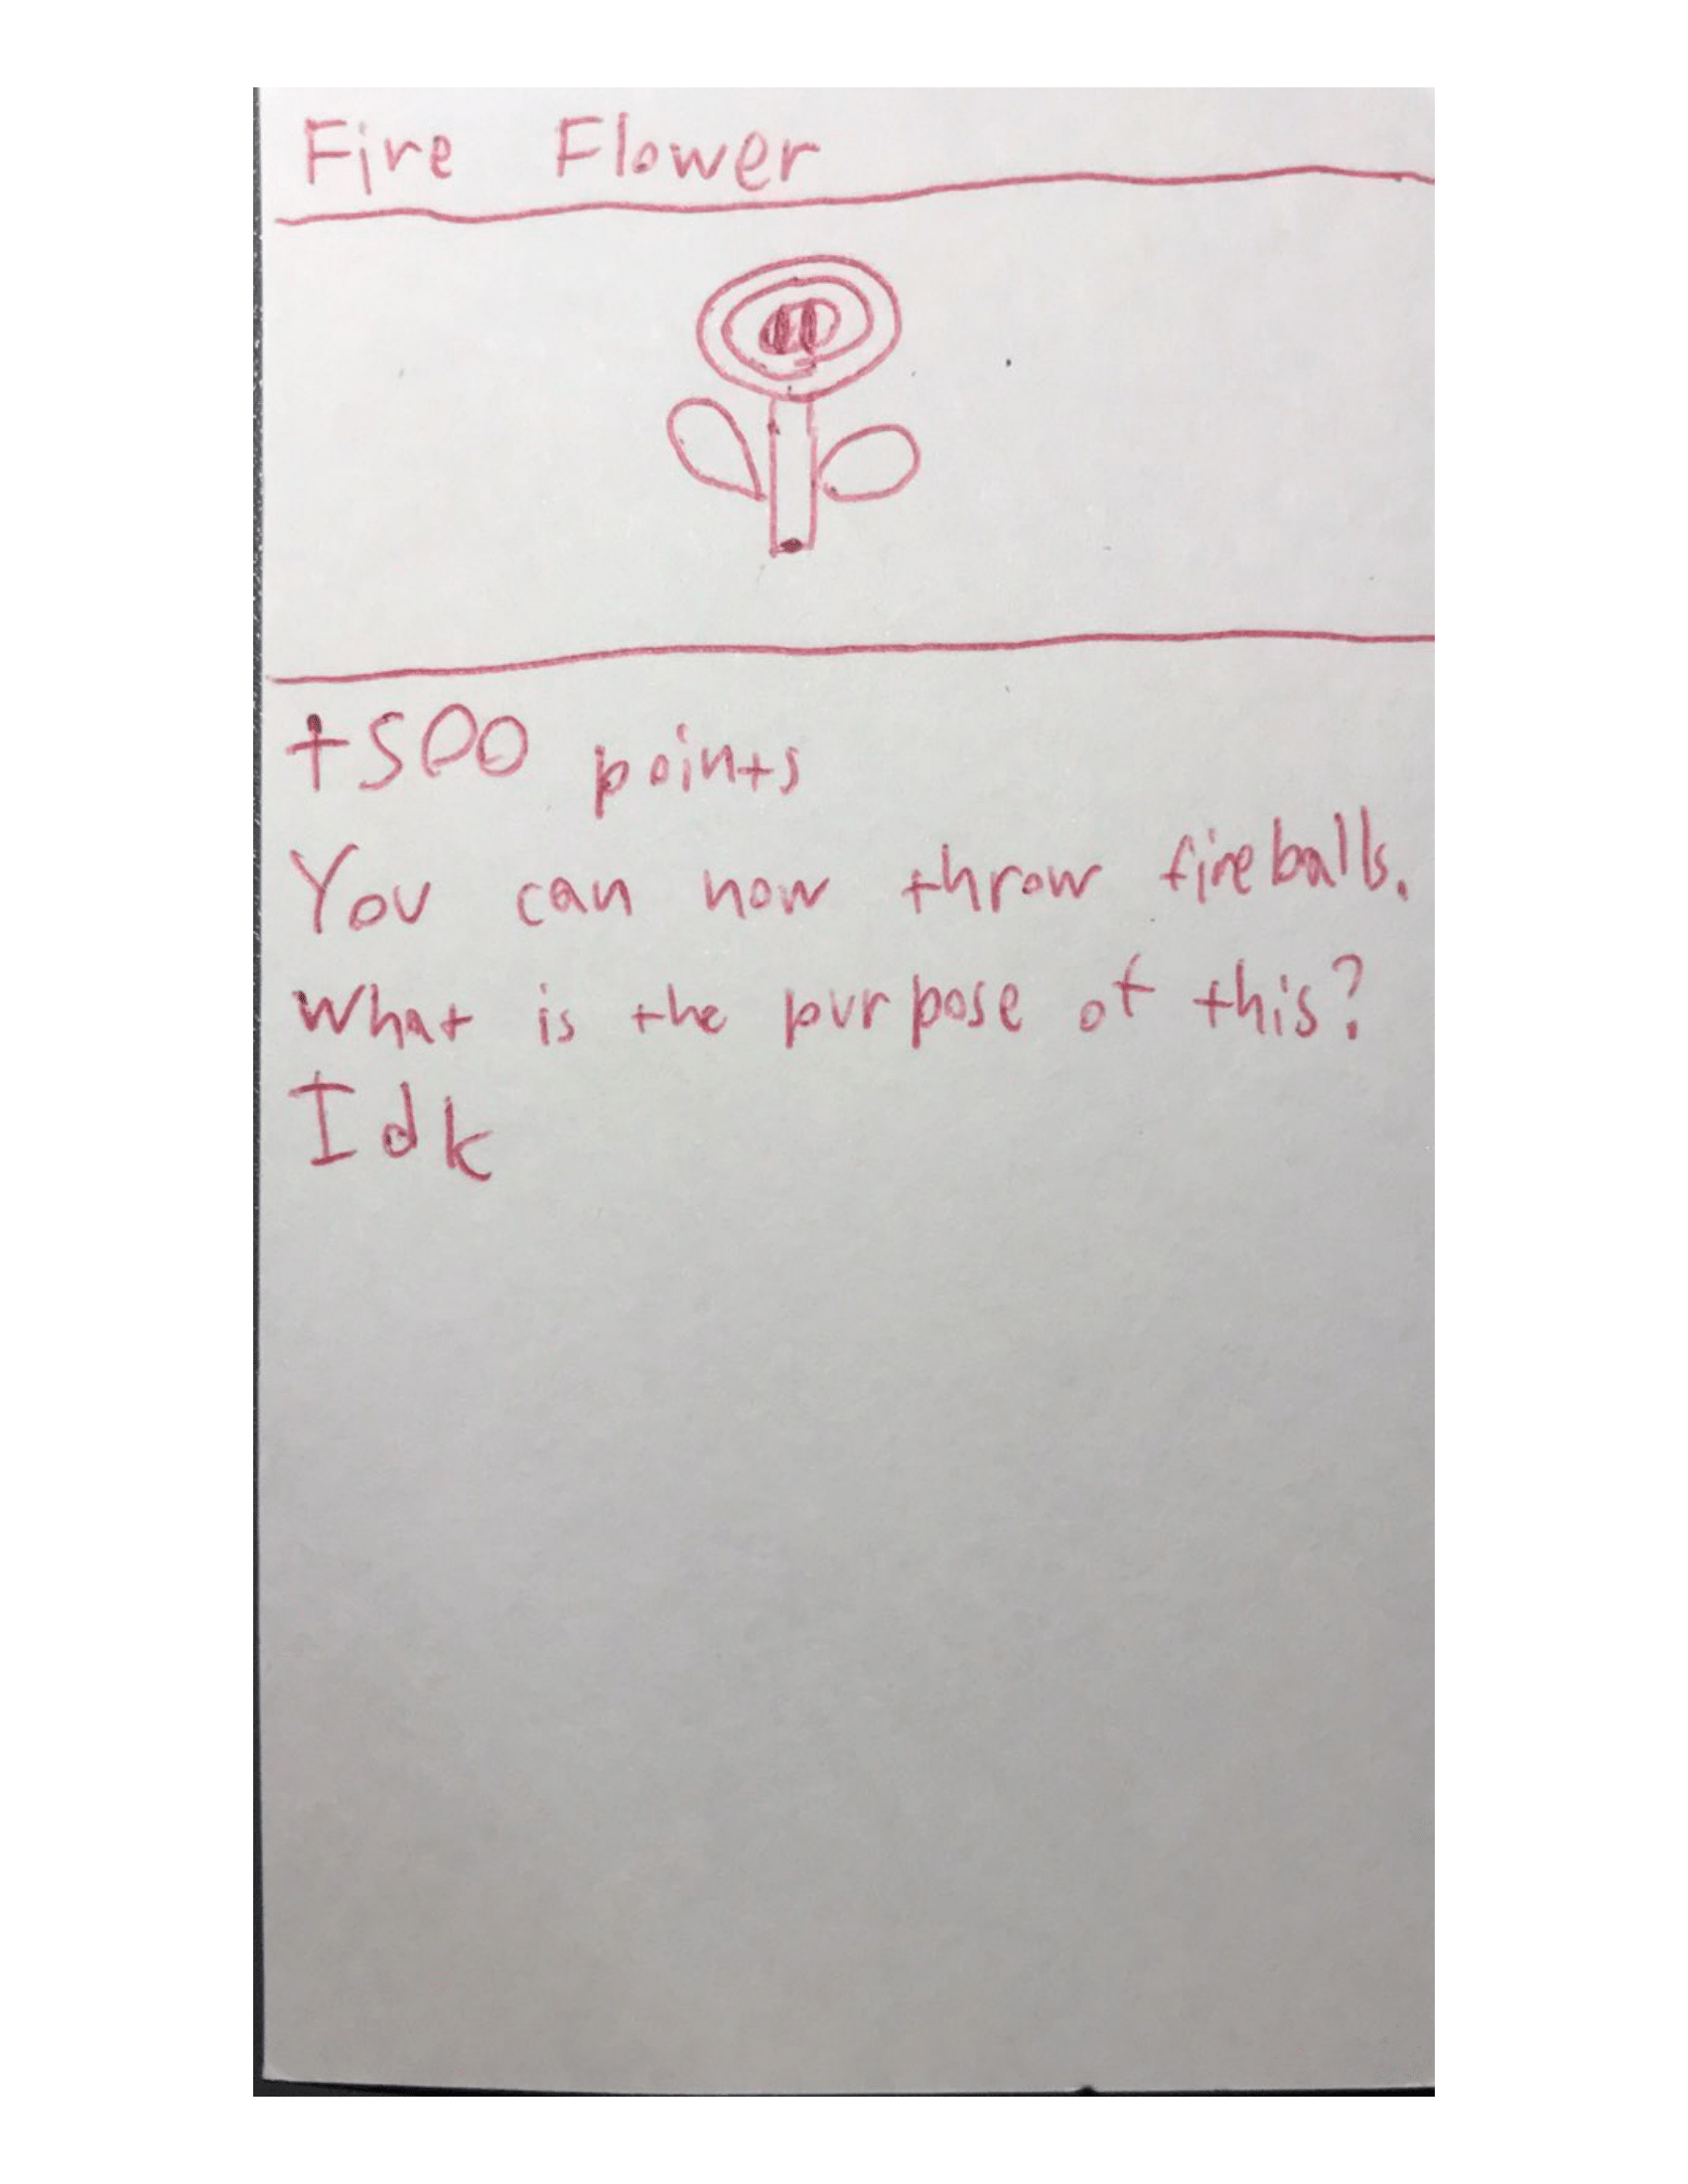 Fire Flower
+500 points
You can now throw fireballs.
What is the purpose of this?
Idk